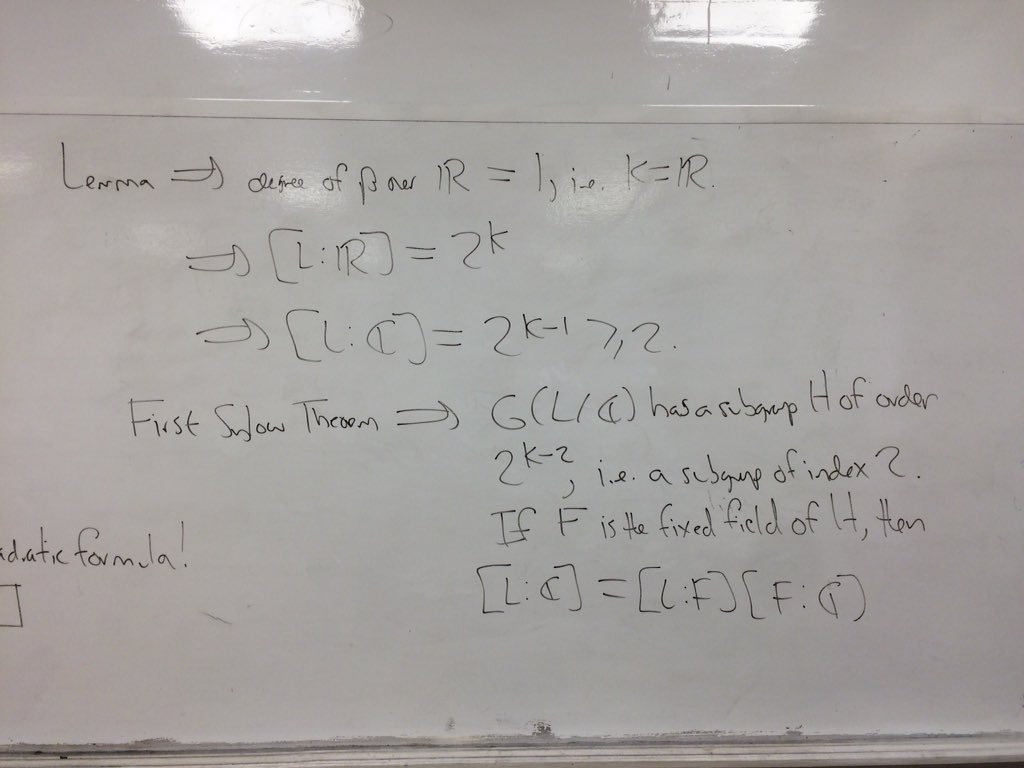 Lemma ⇒ degree of β over ℝ = 1, i.e. K=ℝ.
⇒ [L:ℝ] = 2^k
⇒ [L:ℂ] = 2^{k-1} ≥ 2.
First Sylow Theorem ⇒ G(L/ℂ) has a subgroup H of order
2^{k-2}, i.e. a subgroup of index 2.
If F is the fixed field of H, then
adratic formula!
[L:ℂ] = [L:F][F:ℂ]